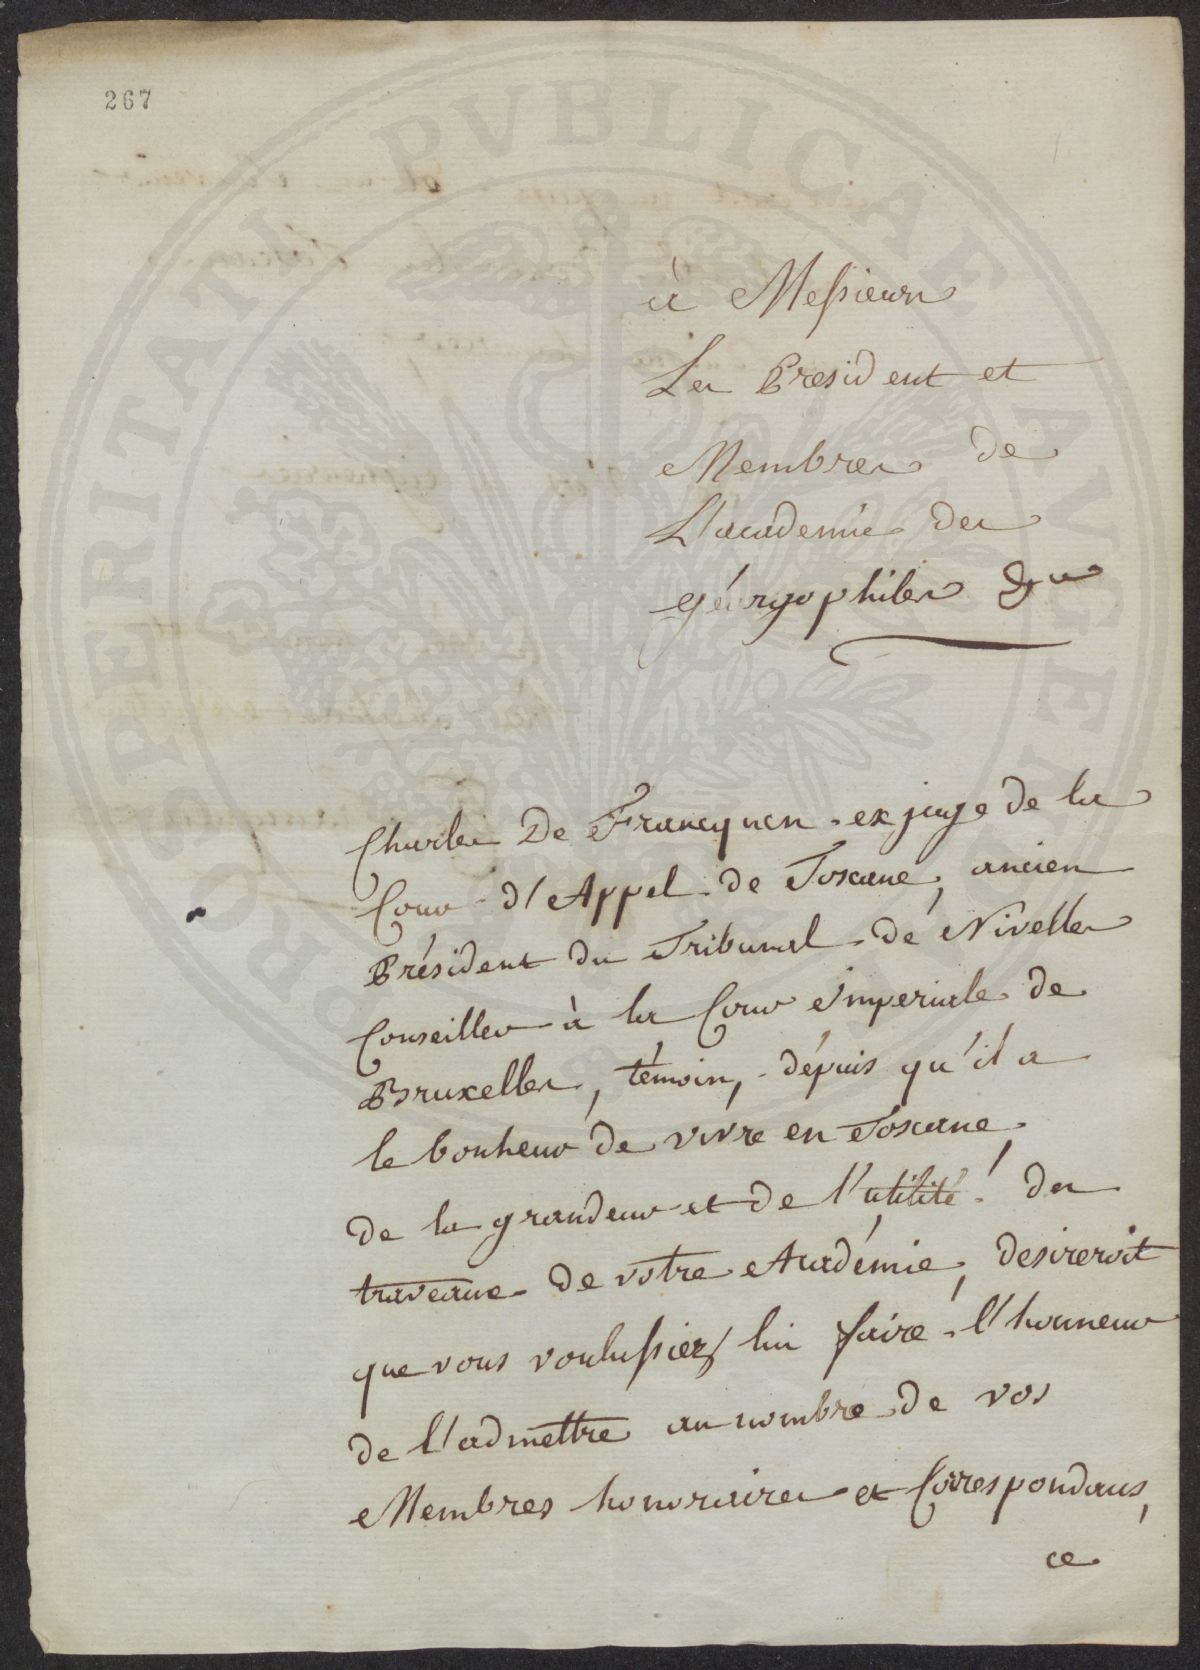 267
à Messieurs
Les President et
Membres de
L'academie des
géorgophiles &ca
Charles De Francquen ex juge de la
Cour d'Appel de Toscane, ancien
Président du Tribunal de Nivelles
Conseiller à la Cour Imperiale de
Bruxelles, témoin, dépuis qu'il a
le bonheur de vivre en Toscane
de la grandeur et de l'utilité des
traveaux de votre Académie, desireroit
que vous voulussiez lui faire l'honneur
de l'admettre au nombre de vos
Membres honoraires et Correspondans,
ce
PROSPERITATI PVBLICAE AVGENDAE